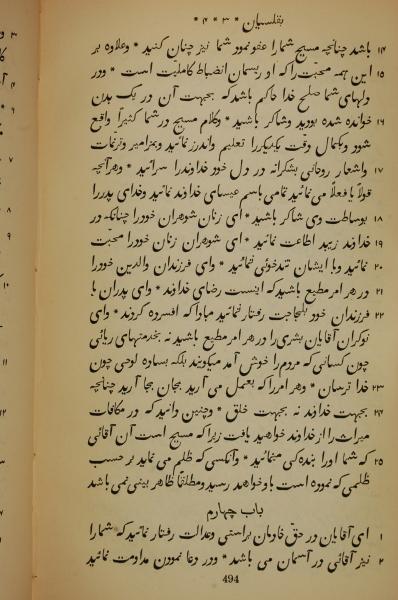 بقلسیان * ۳ * ۴ *
۱۴ باشد چنانچه مسیح شما را عفو نمود شما نیز چنان کنید * وعلاوه بر
۱۵ این همه محبّت را که او ریسمان انضباط کاملیّت است * ودر
دلهای شما صلح خدا حاکم باشد که بجهت آن در یک بدن
۱۶ خوانده شده بودید وشاکر باشید * وکلام مسیح در شما کثیراً واقع
شود وبکمال وقت یکدیگر را تعلیم واندرز نمائید وبمزامیر وترنّمات
۱۷ واشعار روحانی بشکرانه در دل خود خداوند را سرائید * وهر آنچه
قولاً یا فعلاً می نمائید تمامی باسم عیسای خداوند نمائید وخدای پدر را
۱۸ بوساطت وی شاکر باشید * ای زنان شوهران خود را چنانکه در
۱۹ خداوند زیبد اطاعت نمائید * ای شوهران زنان خود را محبّت
۲۰ نمائید وبا ایشان تندخوئی نمائید * وای فرزندان والدین خود را
۲۱ در هر امر مطیع باشید که اینست رضای خداوند * وای پدران با
۲۲ فرزندان خود بلجاجت رفتار نمائید مبادا که افسرده گردند * وای
نوکران آقایان بشری را در هر امر مطیع باشید نه بخدمتهای ریائی
چون کسانی که مردم را خوش آمد میگویند بلکه بساده لوحی چون
۲۳ خدا ترسان * وهر امر را که بعمل می آرید بجان بجا آرید چنانچه
۲۴ بجهت خداوند نه بجهت خلق * وچنین دانید که در مکافات
میراث را از خداوند خواهید یافت زیرا که مسیح است آن آقائی
۲۵ که شما او را بندگی مینمائید * وآنکسی که ظلم می نماید بر حسب
ظلمی که نموده است باو خواهد رسید ومطلقاً ظاهر بینی نمی باشد
باب چهارم
۱ ای آقایان در حقّ خادمان براستی وعدالت رفتار نمائید که شما را
۲ نیز آقائی در آسمان می باشد * ودر دعا نمودن مداومت نمائید
494